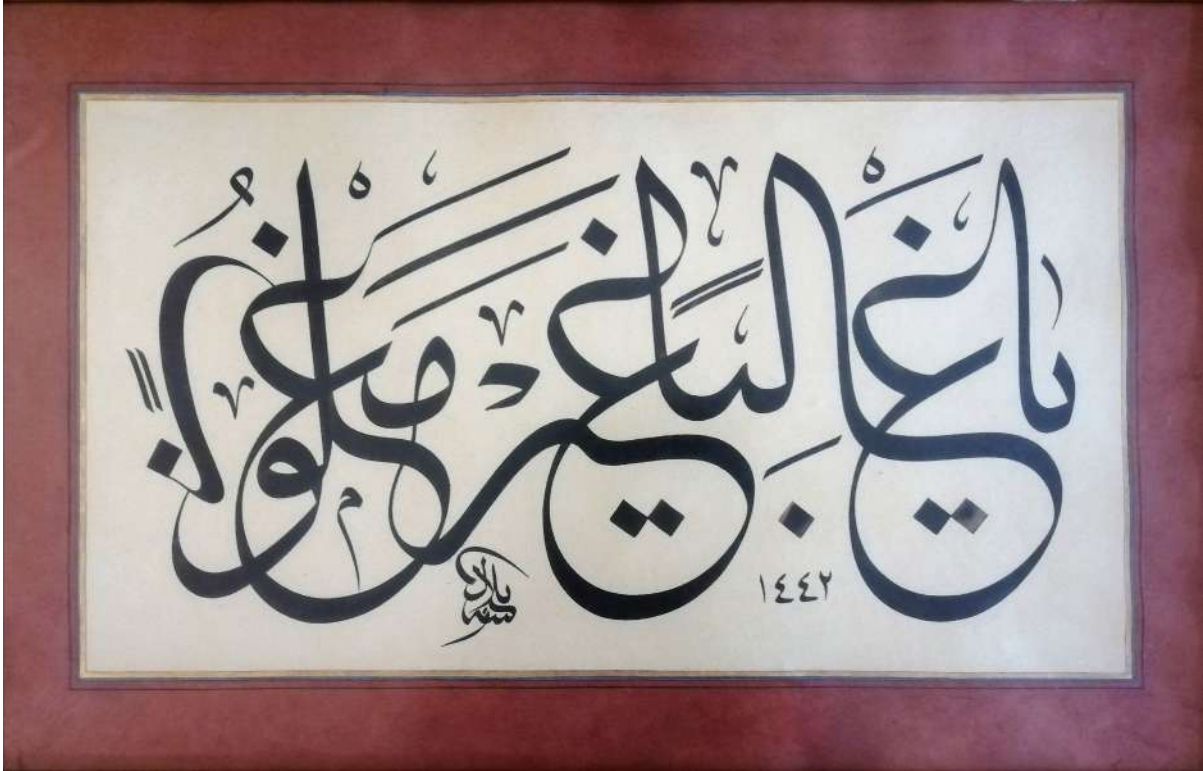 يا غالبا غير مغلوب
١٤٤٢